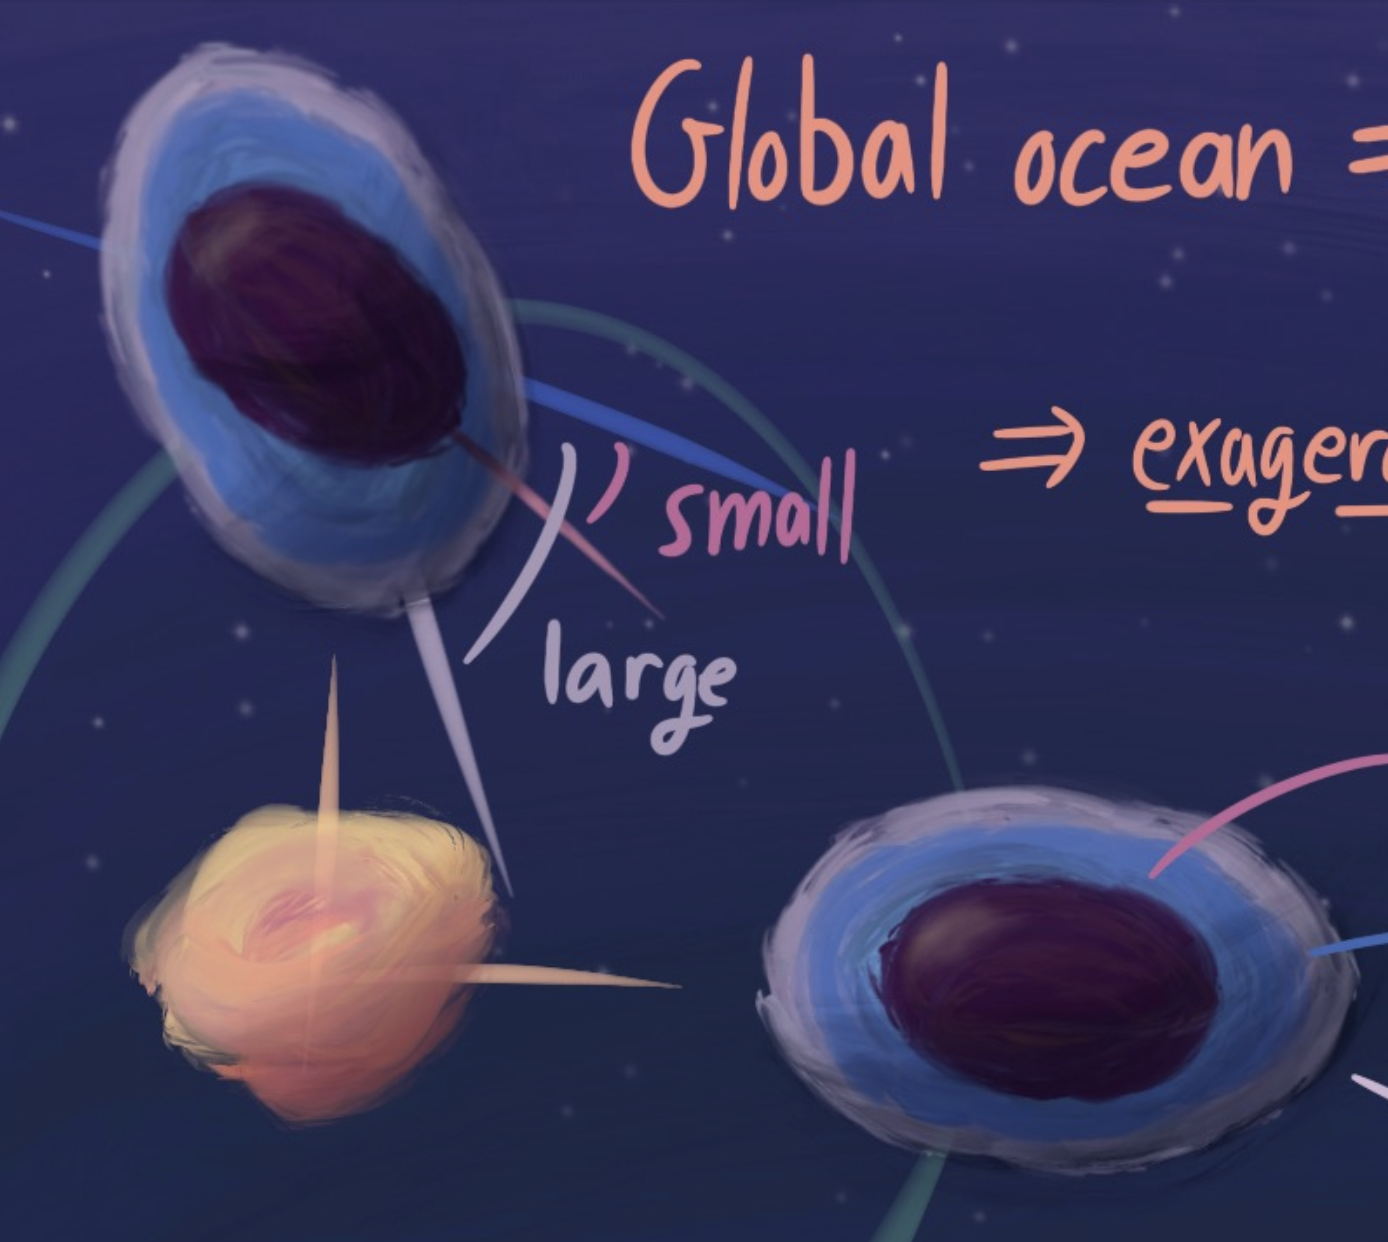 Global ocean =
⇒ exager
small
large